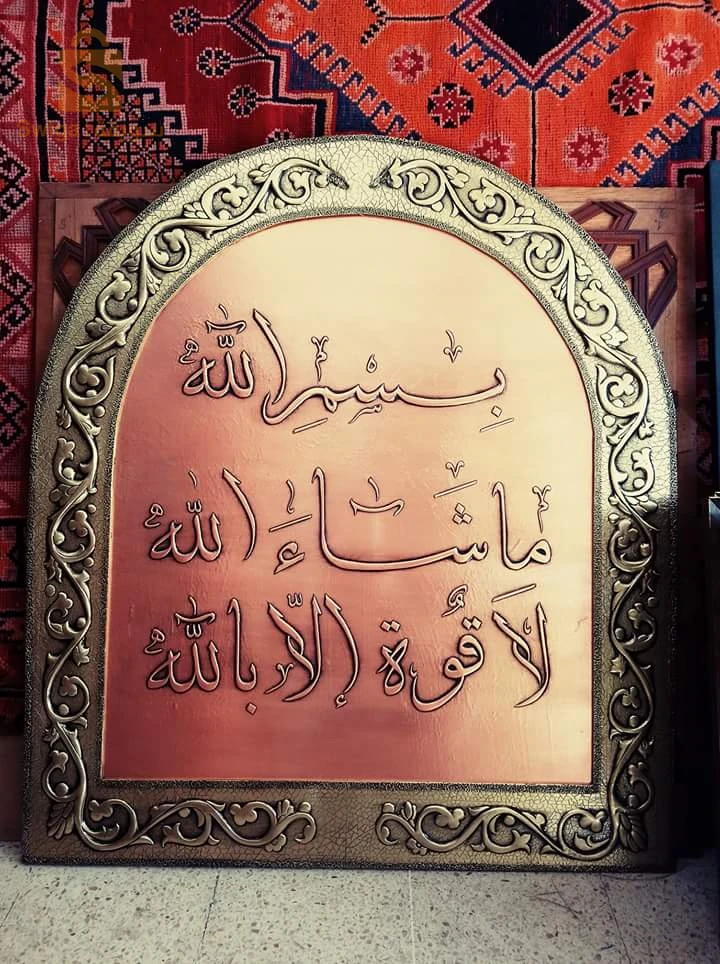 بِسْمِ اللّٰهُ
مِاشَاءَ اللّٰهُ
لَا قُوة إلّا باللّٰهُ